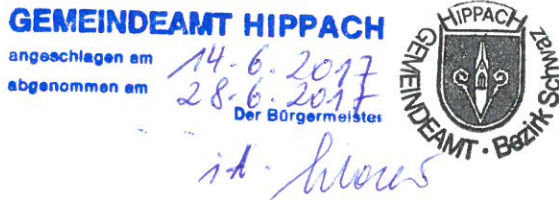 GEMEINDEAMT HIPPACH
angeschlagen am 14.6.2017
abgenommen am 28.6.2017
Der Bürgermeister
i.A.
HIPPACH
GEMEINDEAMT · Bezirk Schwaz